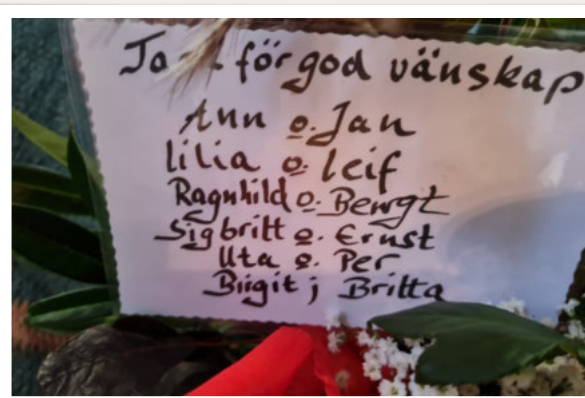 för god vänskap
Ann o. Jan
lilia o. leif
Ragnhild o. Bengt
Sigbritt o. Ernst
Uta o. Per
Birgit j Britta